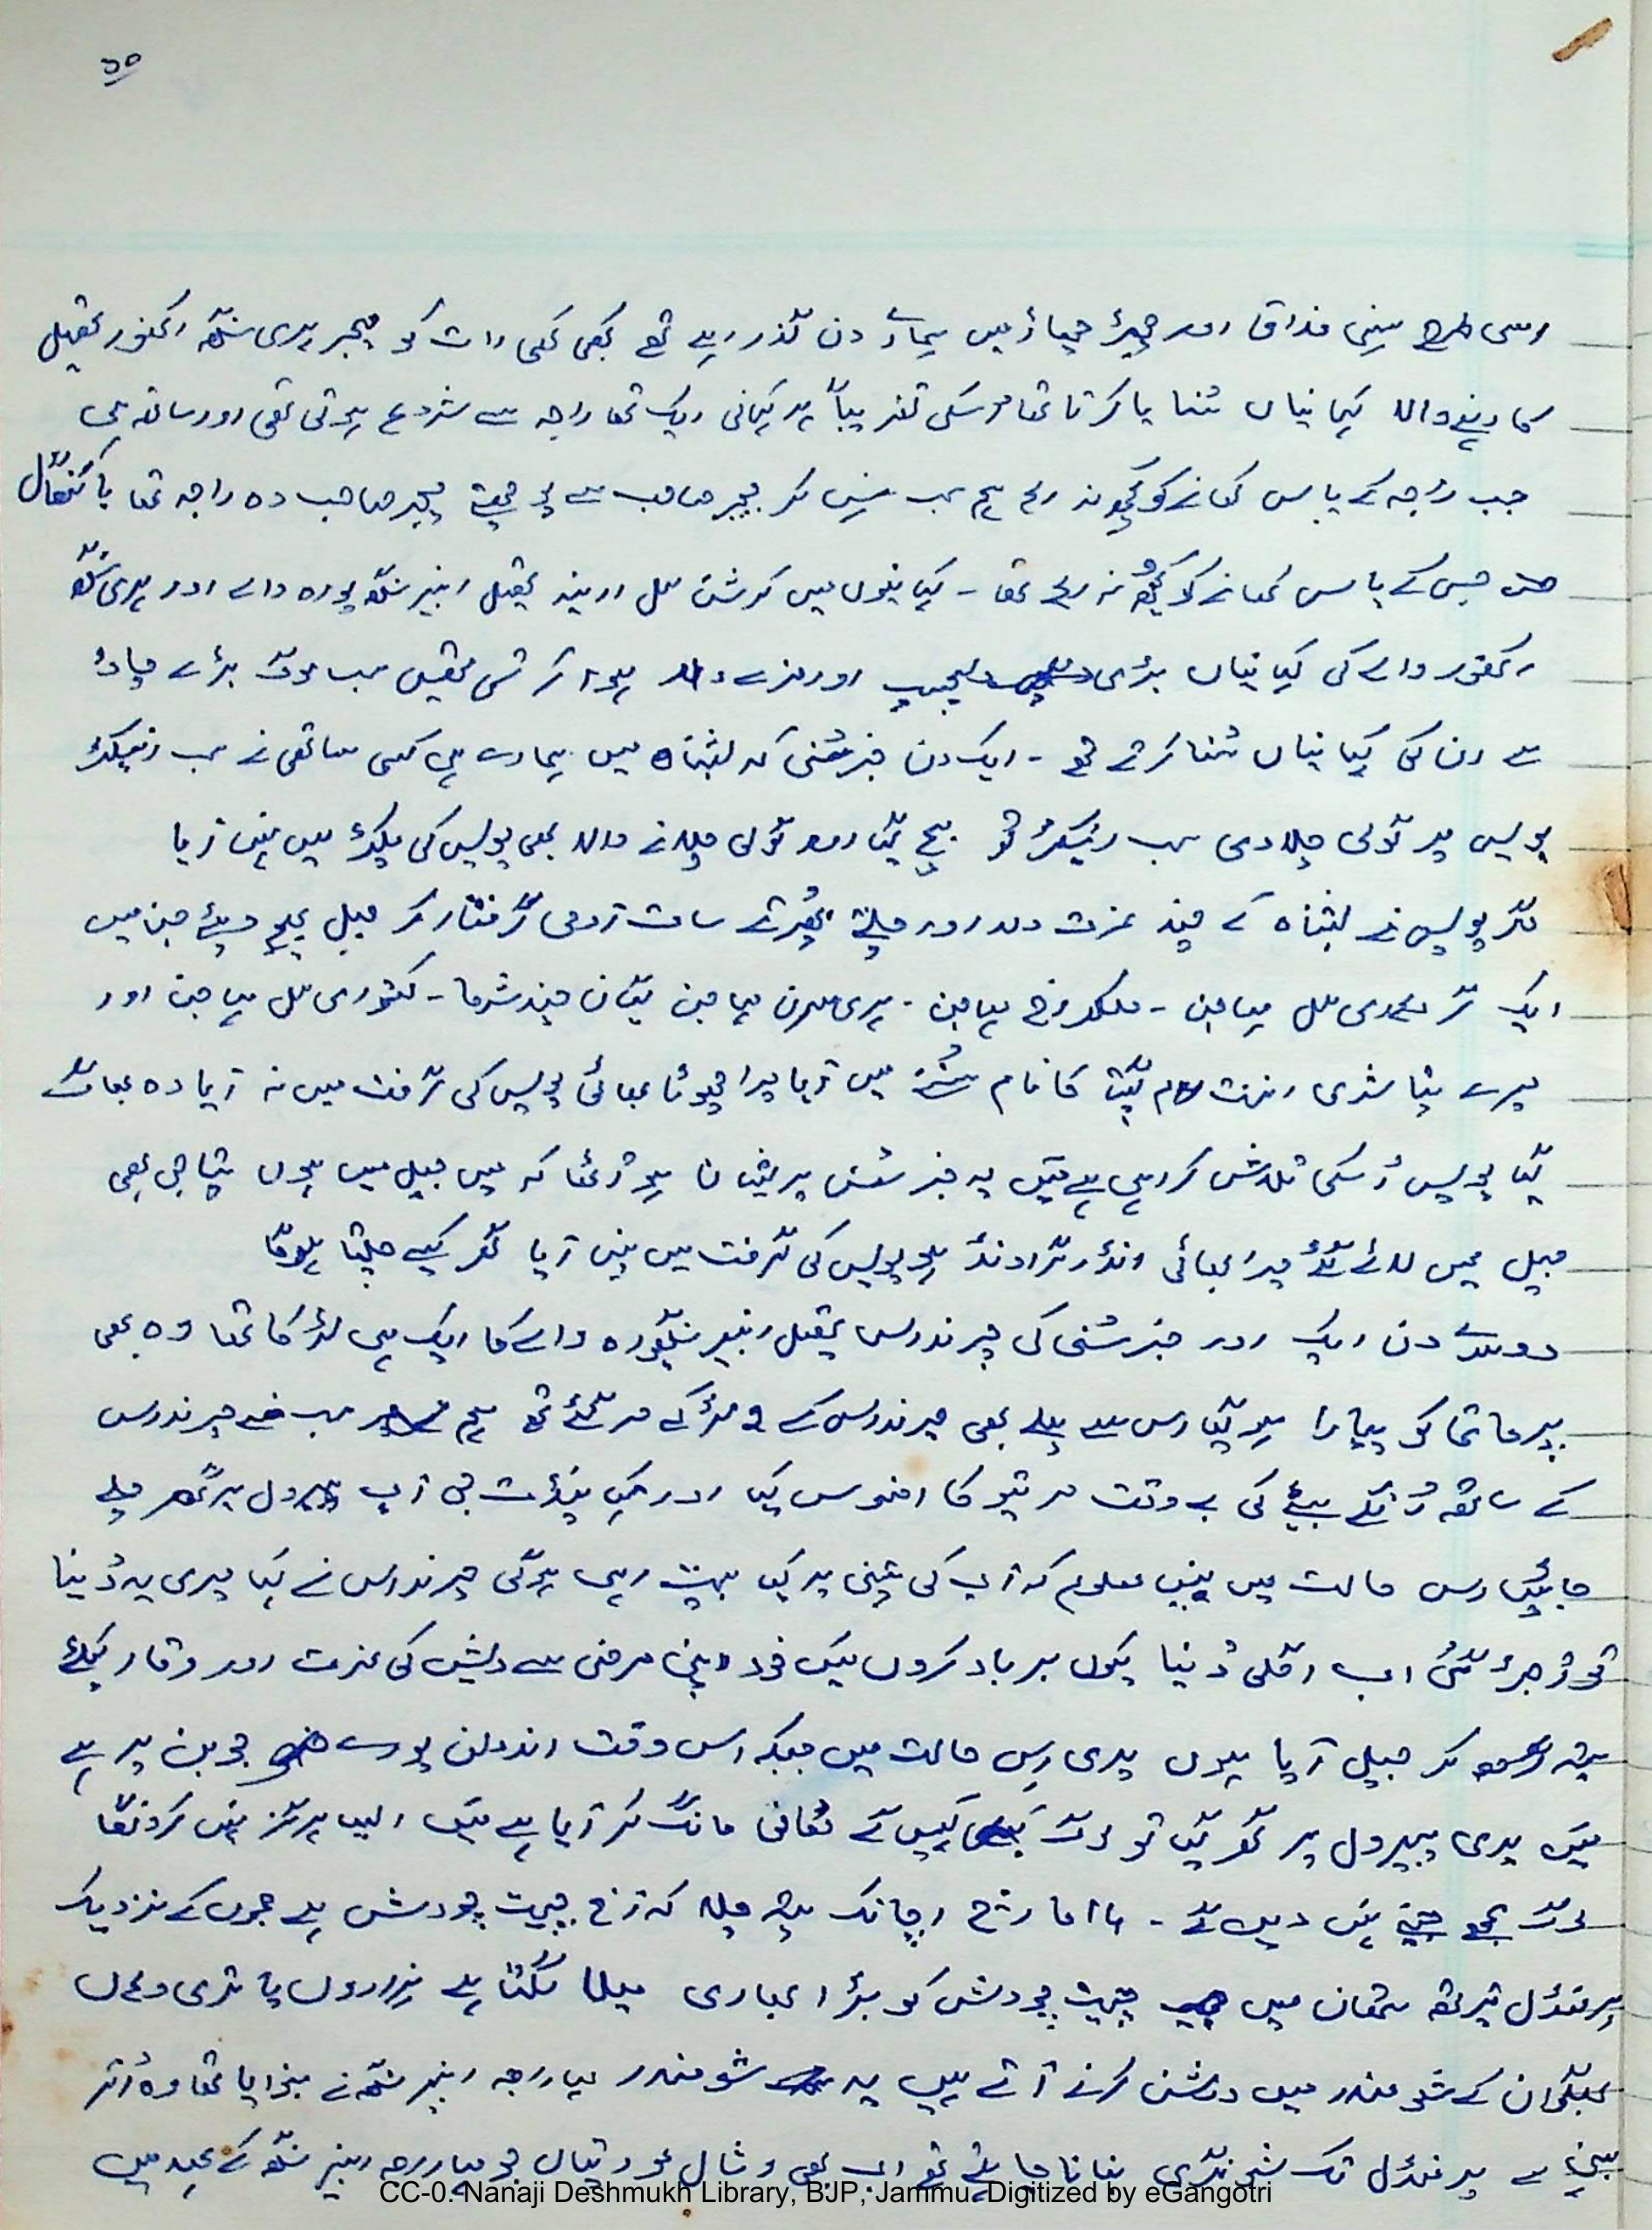 ۳۵
اسی طرح ہنسی مذاق اور چھیڑ چھاڑ میں ہمارے دن گذر رہے تھے کبھی کبھی رات کو میجر ہری سنگھ اکھنور تحصیل
کا رہنے والا کہانیاں سُنایا کرتا تھا اسکی تقریباً ہر کہانی ایک تھا راجہ سے شروع ہوتی تھی اور ساتھ ہی
جب راجہ کے پاس کھانے کو کچھ نہ رہے ہم سب ہنس کر میجر صاحب سے پوچھتے میجر صاحب وہ راجہ تھا یا کنگال
جس کے پاس کھانے کو کچھ نہ رہے تھا - کہانیوں میں کرشن لال ارینہ تحصیل رنبیر سنگھ پورہ والے اور ہری سنگھ
اکھنور والے کی کہانیاں بڑی دلچسپ اور مزے دار ہوا کرتی تھیں سب لوگ بڑے چاؤ
سے ان کی کہانیاں سُنا کرتے تھے - ایک دن خبر سُنی کہ بشناہ میں ہمارے ہی کسی ساتھی نے سب انسپکٹر
پولیس پر گولی چلا دی سب انسپکٹر تو بچ گیا اور گولی چلانے والا بھی پولیس کی پکڑ میں نہیں آیا
مگر پولیس نے بشناہ کے چند عزت دار اور چلتے پھرتے سات آدمی گرفتار کر جیل بھیج دیئے جن میں
ایک گردھاری لال مہاجن - ملکھ راج مہاجن - ہری سرن مہاجن گیان چند شرما - کستوری لال مہاجن اور
میرے پتا شری اننت رام گپتا کا نام سُننے میں آیا میرا چھوٹا بھائی پولیس کی گرفت میں نہ آیا وہ بھاگ
گیا پولیس اُسکی تلاش کر رہی ہے میں یہ خبر سُنکر پریشان ہو اُٹھا کہ میں جیل میں ہوں پتا جی بھی
جیل میں لائے گئے میرا بھائی انڈر گراونڈ ہو پولیس کی گرفت میں نہیں آیا گھر کیسے چلتا ہوگا
دوسرے دن ایک اور خبر سُنی کی چرنداس تحصیل رنبیر سنگھ پورہ والے کا ایک ہی لڑکا تھا وہ بھی
پرماتما کو پیارا ہو گیا اس سے پہلے بھی چرنداس کے ۲ لڑکے مر گئے تھے ہم سب نے چرنداس
کے ساتھ اُنکے بیٹے کی بے وقت مرتیو کا افسوس کیا اور کہا پنڈت جی آپ پیرول پر گھر چلے
جائیں اس حالت میں نہیں معلوم کہ آپ کی پتنی پر کیا بیت رہی ہوگی چرنداس نے کہا میری یہ دُنیا
تو اُجڑ گئی اب اگلی دُنیا کیوں برباد کروں میں خود اپنی مرضی سے دیش کی عزت اور وقار کیلئے
ستیہ گرہ کر جیل آیا ہوں میری اس حالت میں جبکہ اس وقت اندولن پورے جوبن پر ہے
میں یدی پیرول پر گھر گیا تو لوگ کہیں گے معافی مانگ کر آیا ہے میں ایسا ہرگز نہیں کرونگا
لوگ مجھے جینے نہیں دیں گے - ۱۸ مارچ اچانک پتہ چلا کہ آج چیت چودش ہے جموں کے نزدیک
پرمنڈل تیرتھ ستھان میں چیت چودش کو بڑا بھاری میلا لگتا ہے ہزاروں یاتری وہاں
بھگوان کے شو مندر میں درشن کرنے آتے ہیں یہ شو مندر مہاراجہ رنبیر سنگھ نے بنوایا تھا وہ اُتر
بہنی سے پرمنڈل تک شو نگری بنانا چاہتے تھے اب بھی وشال مورتیاں جو مہاراجہ رنبیر سنگھ کے عہد میں
CC-0. Nanaji Deshmukh Library, BJP, Jammu. Digitized by eGangotri